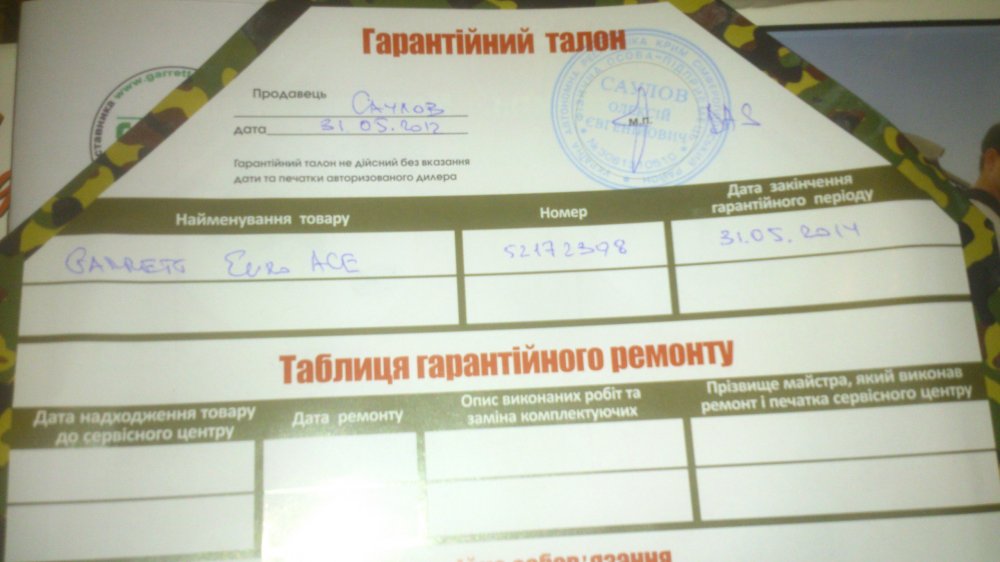 Гарантійний талон
ставника www.garrett
Продавець Саулов
дата 31 05.2012
Гарантійний талон не дійсний без вказання
дати та печатки авторизованого дилера
САУЛОВ
ОЛЕКСІЙ
ЄВГЕНІЙОВИЧ
м.п.
Найменування товару
Номер
Дата закінчення
гарантійного періоду
GARRETT Euro ACE
52172398
31.05.2014
Таблиця гарантійного ремонту
Дата надходження товару
до сервісного центру
Дата ремонту
Опис виконаних робіт та
заміна комплектуючих
Прізвище майстра, який виконав
ремонт і печатка сервісного центру